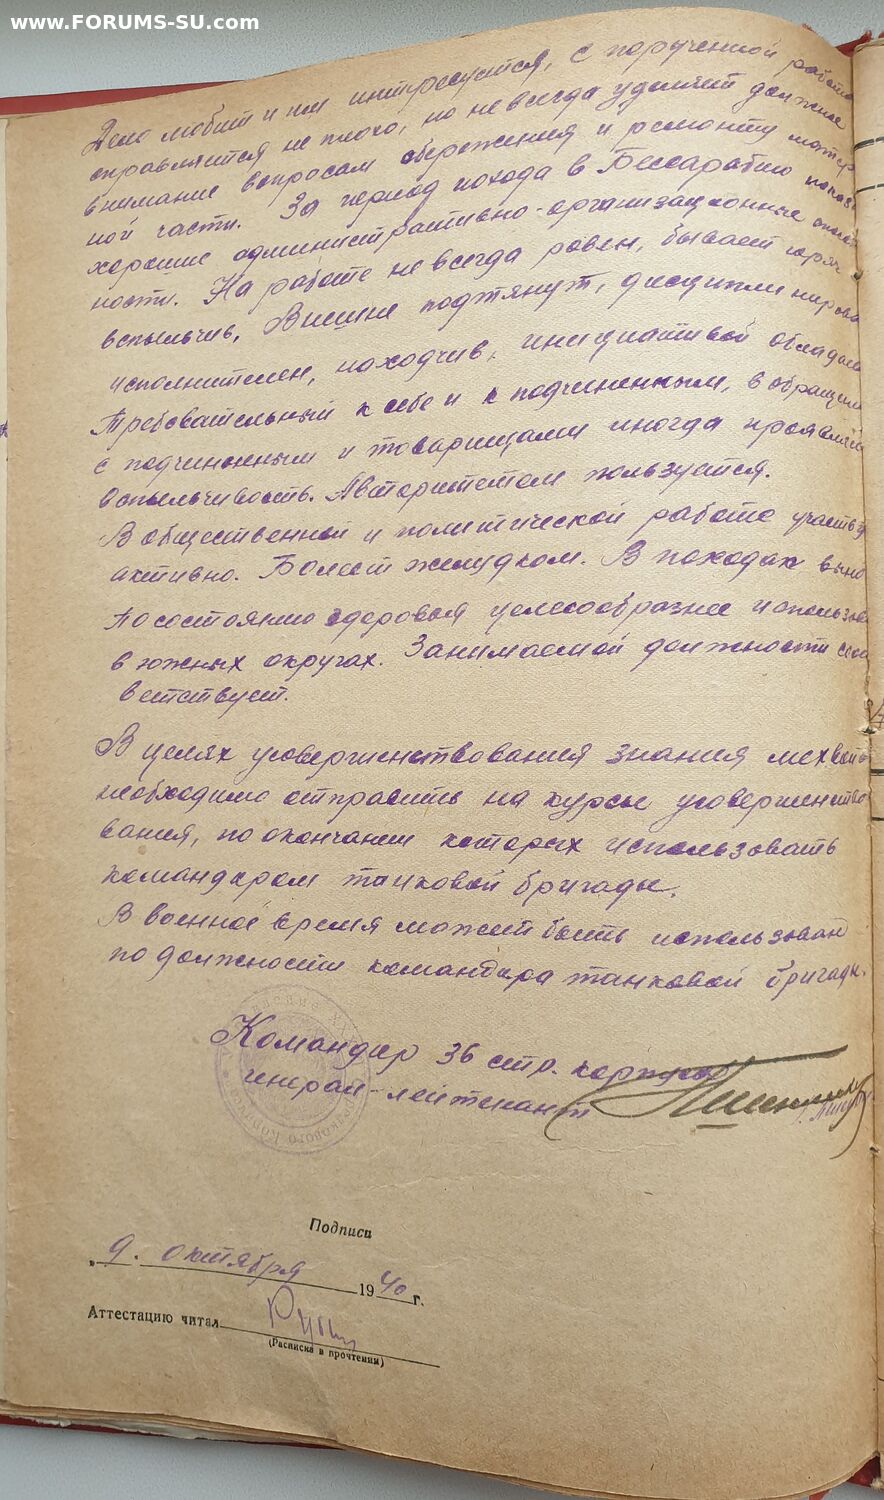 www.FORUMS-SU.com
Дело любит и им интересуется, с порученной работой
справляется не плохо, но не всегда уделяет должное
внимание вопросам сбережения и ремонту матер
ной части. За период похода в Бессарабию показ
хорошие административно-организационные способ
ности. На работе не всегда ровен, бывает горяч
вспыльчив, Внешне подтянут, дисциплинирова
исполнителен, находчив, инициативой обладает
Требовательный к себе и к подчиненным, в обращении
с подчиненными и товарищами иногда проявляет
вспыльчивость. Авторитетом пользуется.
В общественной и политической работе участву
активно. Болеет желудком. В походах вынос
По состоянию здоровья целесообразнее использов
в южных округах. Занимаемой должности соот
ветствует.
В целях усовершенствования знания мехвойск
необходимо отправить на курсы усовершенство
вания, по окончании которых использовать
командиром танковой бригады.
В военное время может быть использован
по должности командира танковой бригады.
Командир 36 стр. корпуса
генерал-лейтенант
Подписи
„ 9. октября 1940 г.
Аттестацию читал
(Расписка в прочтении)